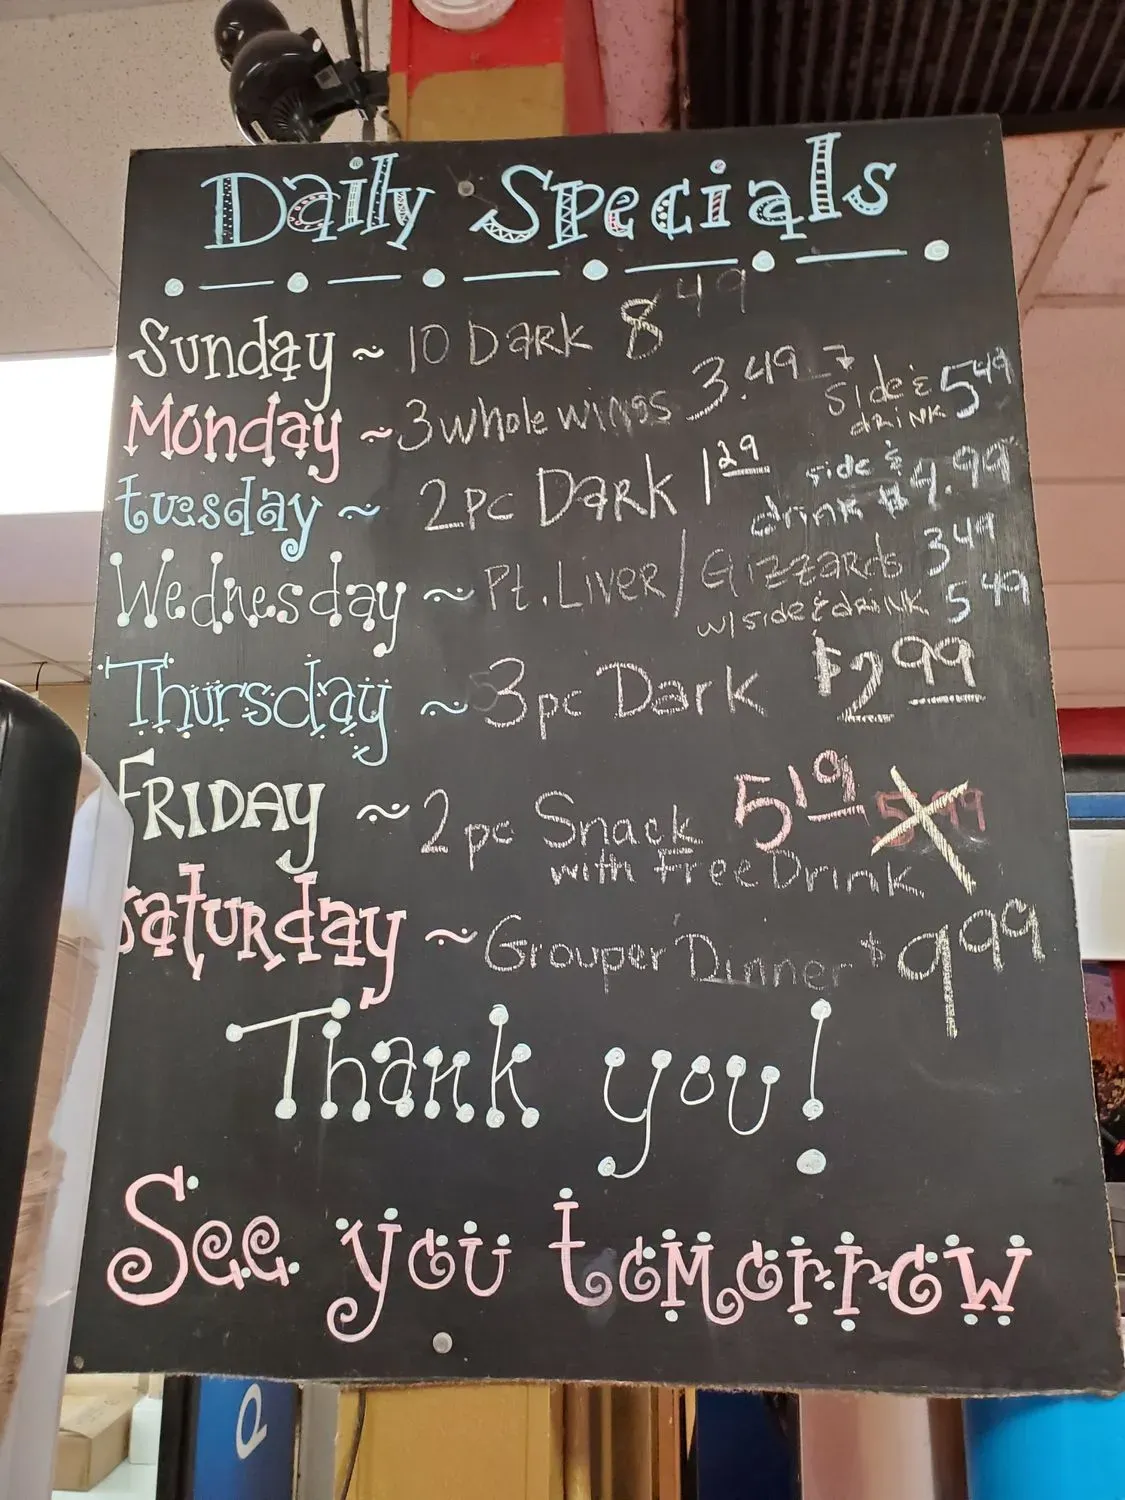 Daily Specials
Sunday ~ 10 Dark 8 49
Monday ~ 3 whole wings 3.49 → side & drink 5 49
tuesday ~ 2pc Dark 1 29 side & drink $4.99
Wednesday ~ Pt. Liver / Gizzards 3 49
w/ side & drink 5 49
Thursday ~ 3pc Dark $2 99
FRIDAY ~ 2pc Snack 5 19 5.99
with Free Drink
Saturday ~ Grouper Dinner $9 99
Thank you!
See you tomorrow